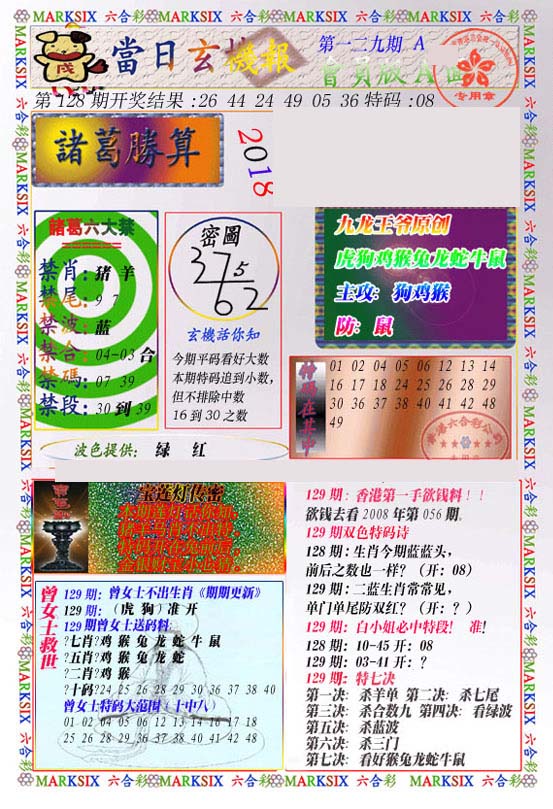 MARKSIX 六合彩 MARKSIX 六合彩 MARKSIX 六合彩 MARKSIX 六合彩
當日玄機報
第一二九期 A
會員版 A
专用章
第 128 期开奖结果 :26 44 24 49 05 36 特码 :08
諸葛勝算
2018
諸葛六大禁
禁肖: 猪 羊
禁尾: 9 7
禁波: 蓝
禁合: 04-03 合
禁碼: 07 39
禁段: 30 到 39
密圖
37 5
62
玄機话你知
今期平码看好大数
本期特码追到小数,
但不排除中数
16 到 30 之数
九龙王爷原创
虎狗鸡猴兔龙蛇牛鼠
主攻: 狗鸡猴
防: 鼠
特码在其中
01 02 04 05 06 12 13 14
16 17 18 24 25 26 28 29
30 36 37 38 40 41 42 48
49
波色提供: 绿 红
宝莲灯传密
129 期: 香港第一手欲钱料 ! !
欲钱去看 2008 年第 056 期.
129 期双色特码诗
128 期: 生肖今期蓝蓝头,
前后之数也一样? (开: 08)
129 期: 二蓝生肖常常见,
单门单尾防双红? (开: ? )
129 期: 白小姐必中特段! 准!
128 期: 10-45 开: 08
129 期: 03-41 开: ?
129 期: 特七决
第一决: 杀羊单 第二决: 杀七尾
第三决: 杀合数九 第四决: 看绿波
第五决: 杀蓝波
第六决: 杀三门
第七决: 看好猴兔龙蛇牛鼠
曾女士救世
129 期: 曾女士不出生肖《期期更新》
129 期: (虎 狗) 准 开
129 期曾女士送码料:
?七肖?鸡 猴 兔 龙 蛇 牛 鼠
?五肖?鸡 猴 兔 龙 蛇
?二肖?鸡 猴
?十码?24 25 26 28 29 30 36 37 38 40
曾女士特码大范围 (十中八)
01 02 04 05 06 12 13 14 16 17 18
25 26 28 29 36 37 38 40 41 42 48
MARKSIX 六合彩 MARKSIX 六合彩 MARKSIX 六合彩 MARKSIX 六合彩